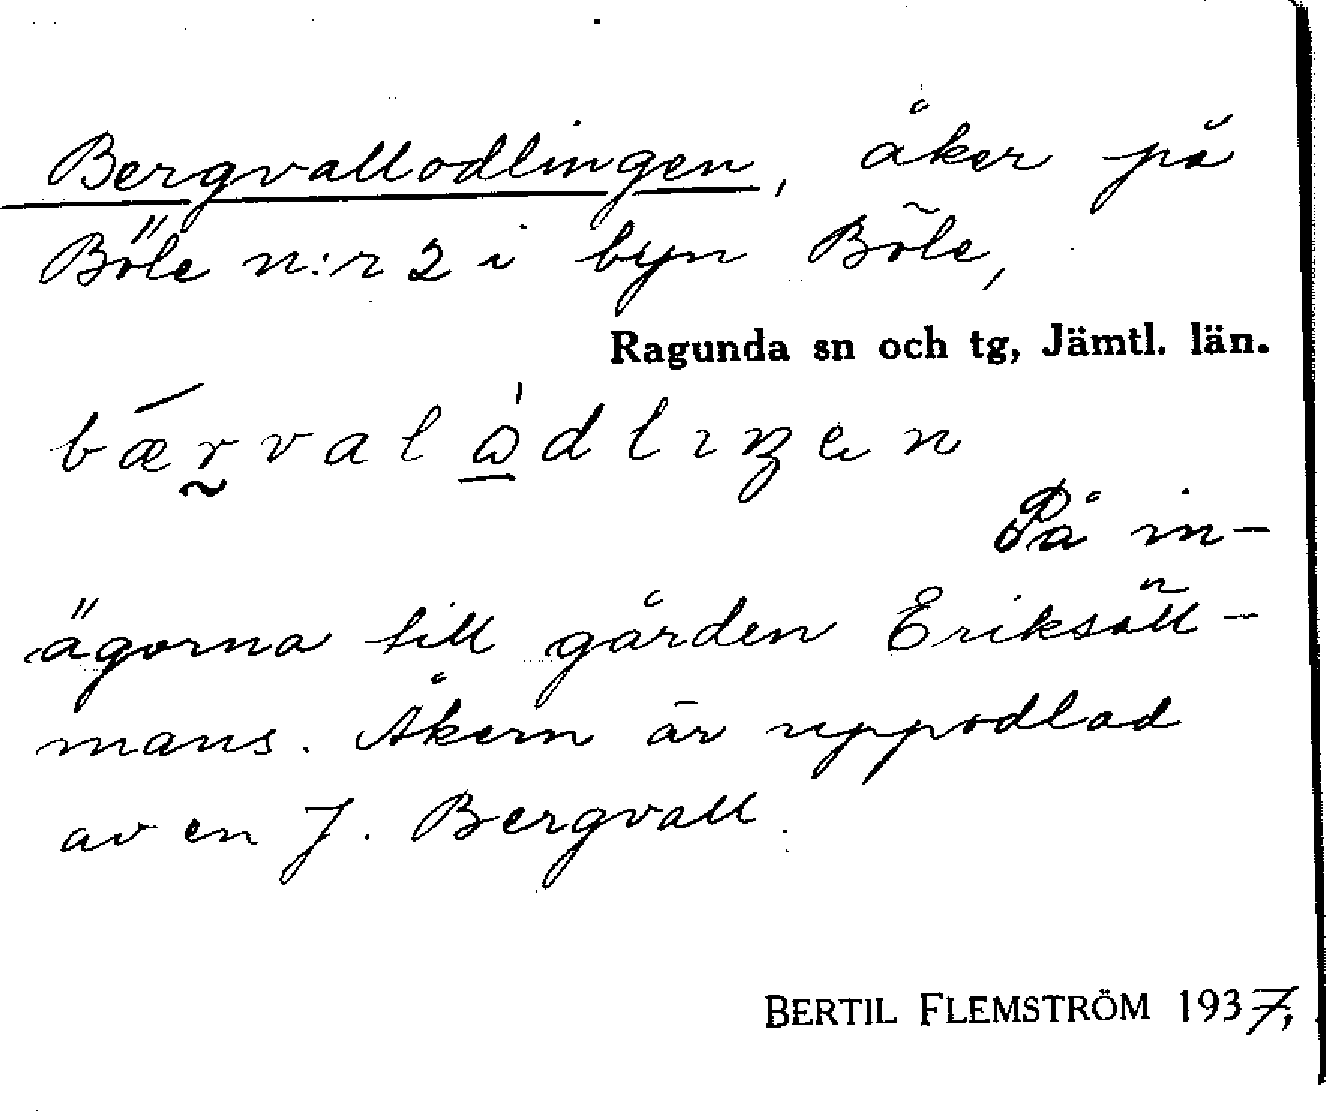 Bergvallodlingen, åker på
Böle n:r 2 i byn Böle,
Ragunda sn och tg, Jämtl. län.
På in-
ägorna till gården Eriksäll-
mans. Åkern är uppodlad
av en J. Bergvall.
BERTIL FLEMSTRÖM 1937,